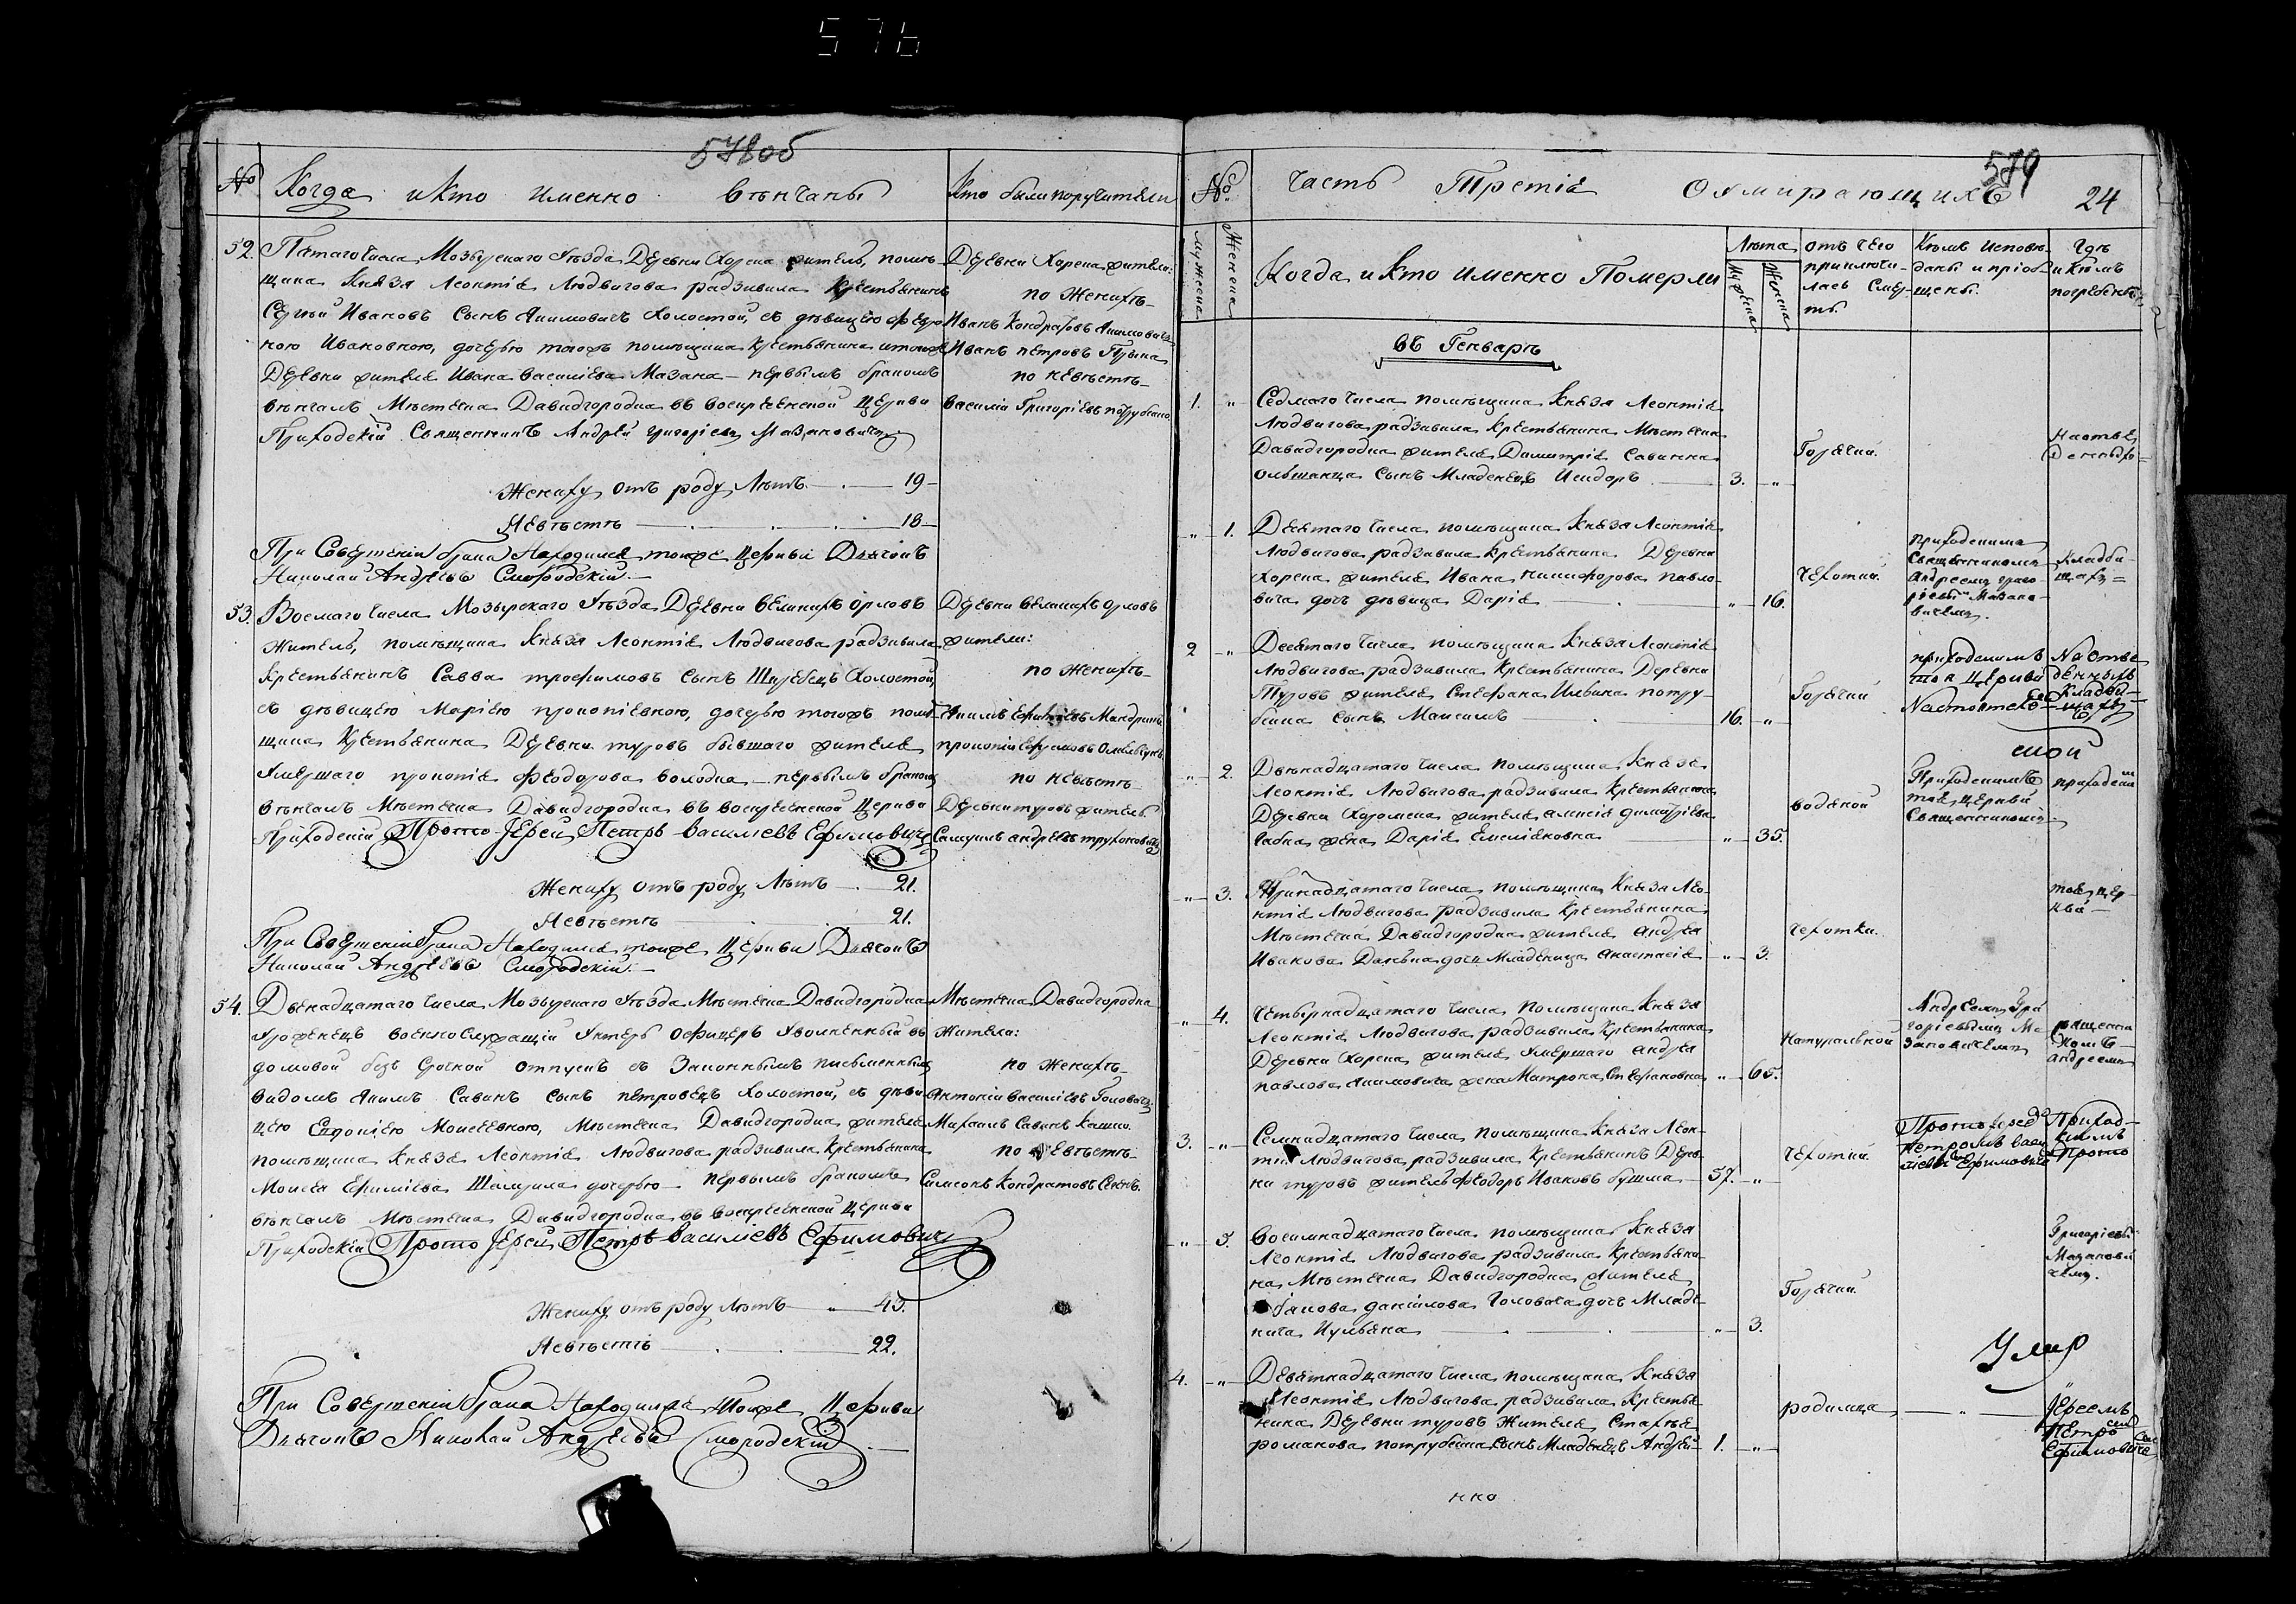 576
578об
№ Когда и кто именно вѣнчаны
Кто были поручители
52. Пятаго числа Мозырскаго уѣзда Деревни Хорска житель, помѣ-
щика Князя Леонтія Людвигова радзивила крестьянинъ
Сергѣй Ивановъ сынъ Якимовичъ холостой, съ дѣвицею Февро
ніею Ивановною, дочерью тогожъ помѣщика крестьянина и тояже
Деревни жителя Ивана Василіева Мазана - первымъ бракомъ
вѣнчалъ Мѣстечка Давидгородка въ воскресенской церкви
Приходскій Священникъ Андрей Григоріевъ Мазановичъ
Жениху отъ роду лѣтъ 19
Невѣстѣ 18
При Совершеніи брака Находился тояже Церкви Дьячокъ
Николай Андреевъ Смородскій
Деревни Хорска жители:
по Женихѣ
Иванъ Кондратовъ Якимовичъ
Иванъ Петровъ
по невѣстѣ
Василій Григоріевъ
53. Восмаго числа Мозырскаго уѣзда Деревни Великихъ Орловъ
житель, помѣщика Князя Леонтія Людвигова радзивила
крестьянинъ Савва трофимовъ сынъ холостой,
съ дѣвицею Маріею прокопіевною, дочерью тогожъ помѣ-
щика крестьянина Деревни туровъ бывшаго жителя
умершаго прокопія феодорова володка первымъ бракомъ
вѣнчалъ Мѣстечка Давидгородка въ воскресенской Церкви
Приходскій Прото Іерей Петръ Василіевъ Ефимовичъ
Жениху отъ роду Лѣтъ 21.
Невѣстѣ 21.
При Совершеніи брака Находился тояже Церкви Дьячокъ
Николай Андреевъ Смородскій
Деревни великихъ орловъ
жители:
по Женихѣ
по невѣстѣ
Деревни туровъ житель
Самуилъ андреевъ труханович
54. Двенадцатаго числа Мозырскаго уѣзда Мѣстечка Давидгородка
уроженецъ военнослужащій унтеръ офицеръ уволненный въ
домовой безъ срочной отпускъ съ Законнымъ письменнымъ
видомъ Якимъ Савинъ сынъ петровецъ холостой, съ дѣви
цею Моисеевною, Мѣстечка Давидгородка жителя
помѣщика Князя Леонтія Людвигова радзивила Крестьянина
Моисея дочерью первымъ бракомъ
вѣнчалъ Мѣстечка Давидгородка въ воскресенской Церкви
Приходскій Прото Іерей Петръ Василіевъ Ефимовичъ
Жениху отъ роду лѣтъ 43.
Невѣстѣ 22.
При Совершеніи брака Находился тояже Церкви
Дьячокъ Николай Андреевъ Смородскій
Мѣстечка Давидгородка
Жители:
по Женихѣ
Антоній Василіевъ
Михаилъ Савинъ
по невѣстѣ
Симеонъ Кондратовъ
579
№ Часть Третія О умирающихъ 24
Мужеска Женска
Когда и кто именно Померли
Лѣта Мужска Женска
отъ чего приключи-
лась смер-
ть.
Кѣмъ исповѣ-
даны и пріоб-
щены.
Гдѣ
и кѣмъ
погребены
въ Генварѣ
1. Седмаго числа помѣщика Князя Леонтія
Людвигова радзивила крестьянина Мѣстечка
Давидгородка жителя Димитрія Савинка
ольшанца сынъ Младенецъ Исидоръ 3.
Горячки.
1. Девятаго числа помѣщика Князя Леонтія
Людвигова радзивила Крестьянина Деревни
Хорска жителя Ивана никифорова павло-
вича дочь дѣвица Дарія 16.
чехотки.
приходскимъ
Священникомъ
Андреемъ григо-
ріевымъ Мазано-
вичемъ.
Кладби-
щахъ
2 Десятаго числа помѣщика Князя Леонтія
Людвигова радзивила Крестьянина Деревни
Туровъ жителя Стефана Ильина потру-
бейка сынъ Максимъ 16.
Горячки
приходскимъ
тоя Церкви
Настоятеле
2. Двѣнадцатаго числа помѣщика Князя
Леонтія Людвигова радзивила Крестьянина
Деревни Хоромска жителя алексія димитріева
бабка жена Дарія Емеліановна 35.
водяной
Приходскимъ
тоя церкви
Священникомъ
3. Тринадцатаго числа помѣщика Князя Лео-
нтія Людвигова радзивила Крестьянина
Мѣстечка Давидгородка жителя андрея
Иванова дочь Младеница анастасія 3.
чехотки.
тоя цер-
кви
4. четырнадцатаго числа помѣщика Князя
Леонтія Людвигова радзивила Крестьянина
Деревни Хорска жителя умершаго андрея
павлова якимовича жена Матрона Стефановна 65.
Натуральной
Андреемъ Гри
горіевымъ Ма
зановичемъ
священни
комъ
андреемъ
3. Семнадцатаго числа помѣщика Князя Леон-
тія Людвигова радзивила Крестьянинъ Дерев-
ни туровъ житель Феодоръ Ивановъ бушма 57.
чехотки
Протоіерее
Петромъ васи
Ефимовиче
Приход-
скимъ
Прото
5. восемнадцатаго числа помѣщика Князя
Леонтія Людвигова радзивила Крестьяни-
на Мѣстечка Давидгородка жителя
Іакова даніилова Головача дочь Младе-
ница Иульяна 3.
Горячки
Григоріевы
Мазанови
чемъ.
4. Девятнадцатаго числа помѣщика Князя
Леонтія Людвигова радзивила Крестья-
нина Деревни туровъ жителя Стахія
романова потрубейка сынъ Младенецъ Андрей 1.
родимца
Іереемъ
Петро
Ефимовиче